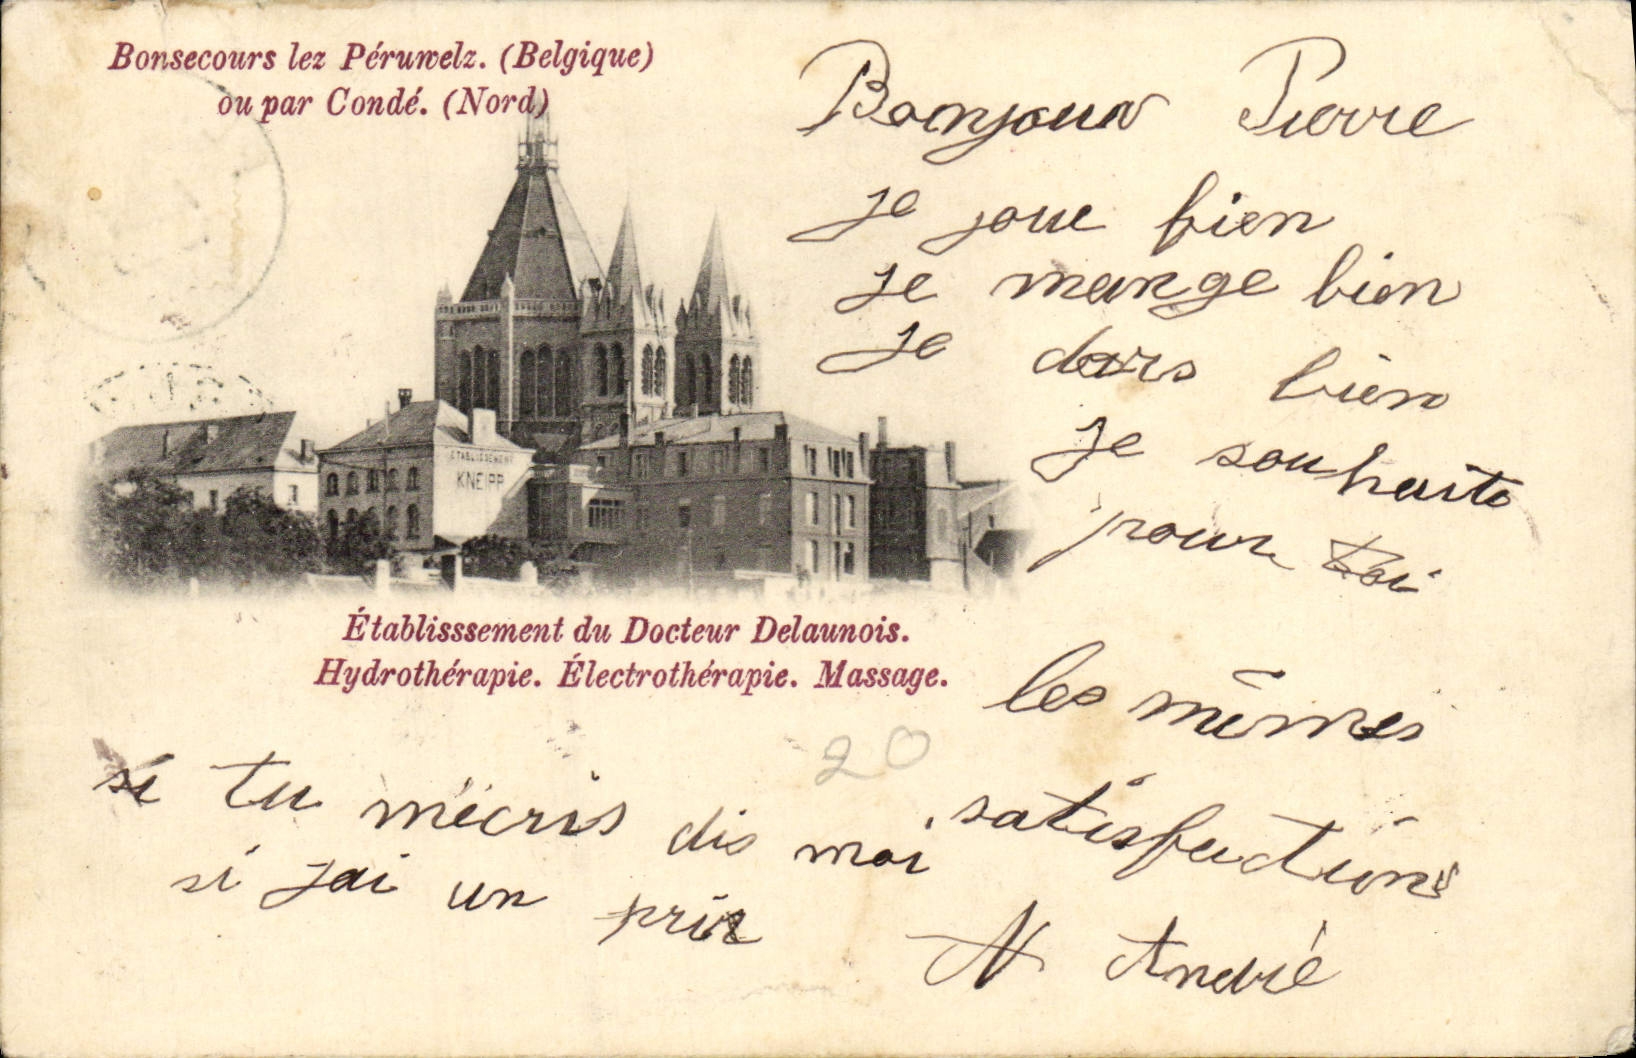 Bonsecours lez Péruwelz. (Belgique)
ou par Condé. (Nord)
ÉTABLISSEMENT
KNEIPP
Établisssement du Docteur Delaunois.
Hydrothérapie. Électrothérapie. Massage.
Bonjour Pierre
je joue bien
je mange bien
je dors bien
je souhaite
pour toi
les mêmes
satisfactions
si tu mécris dis moi
si jai un prix
N André
20